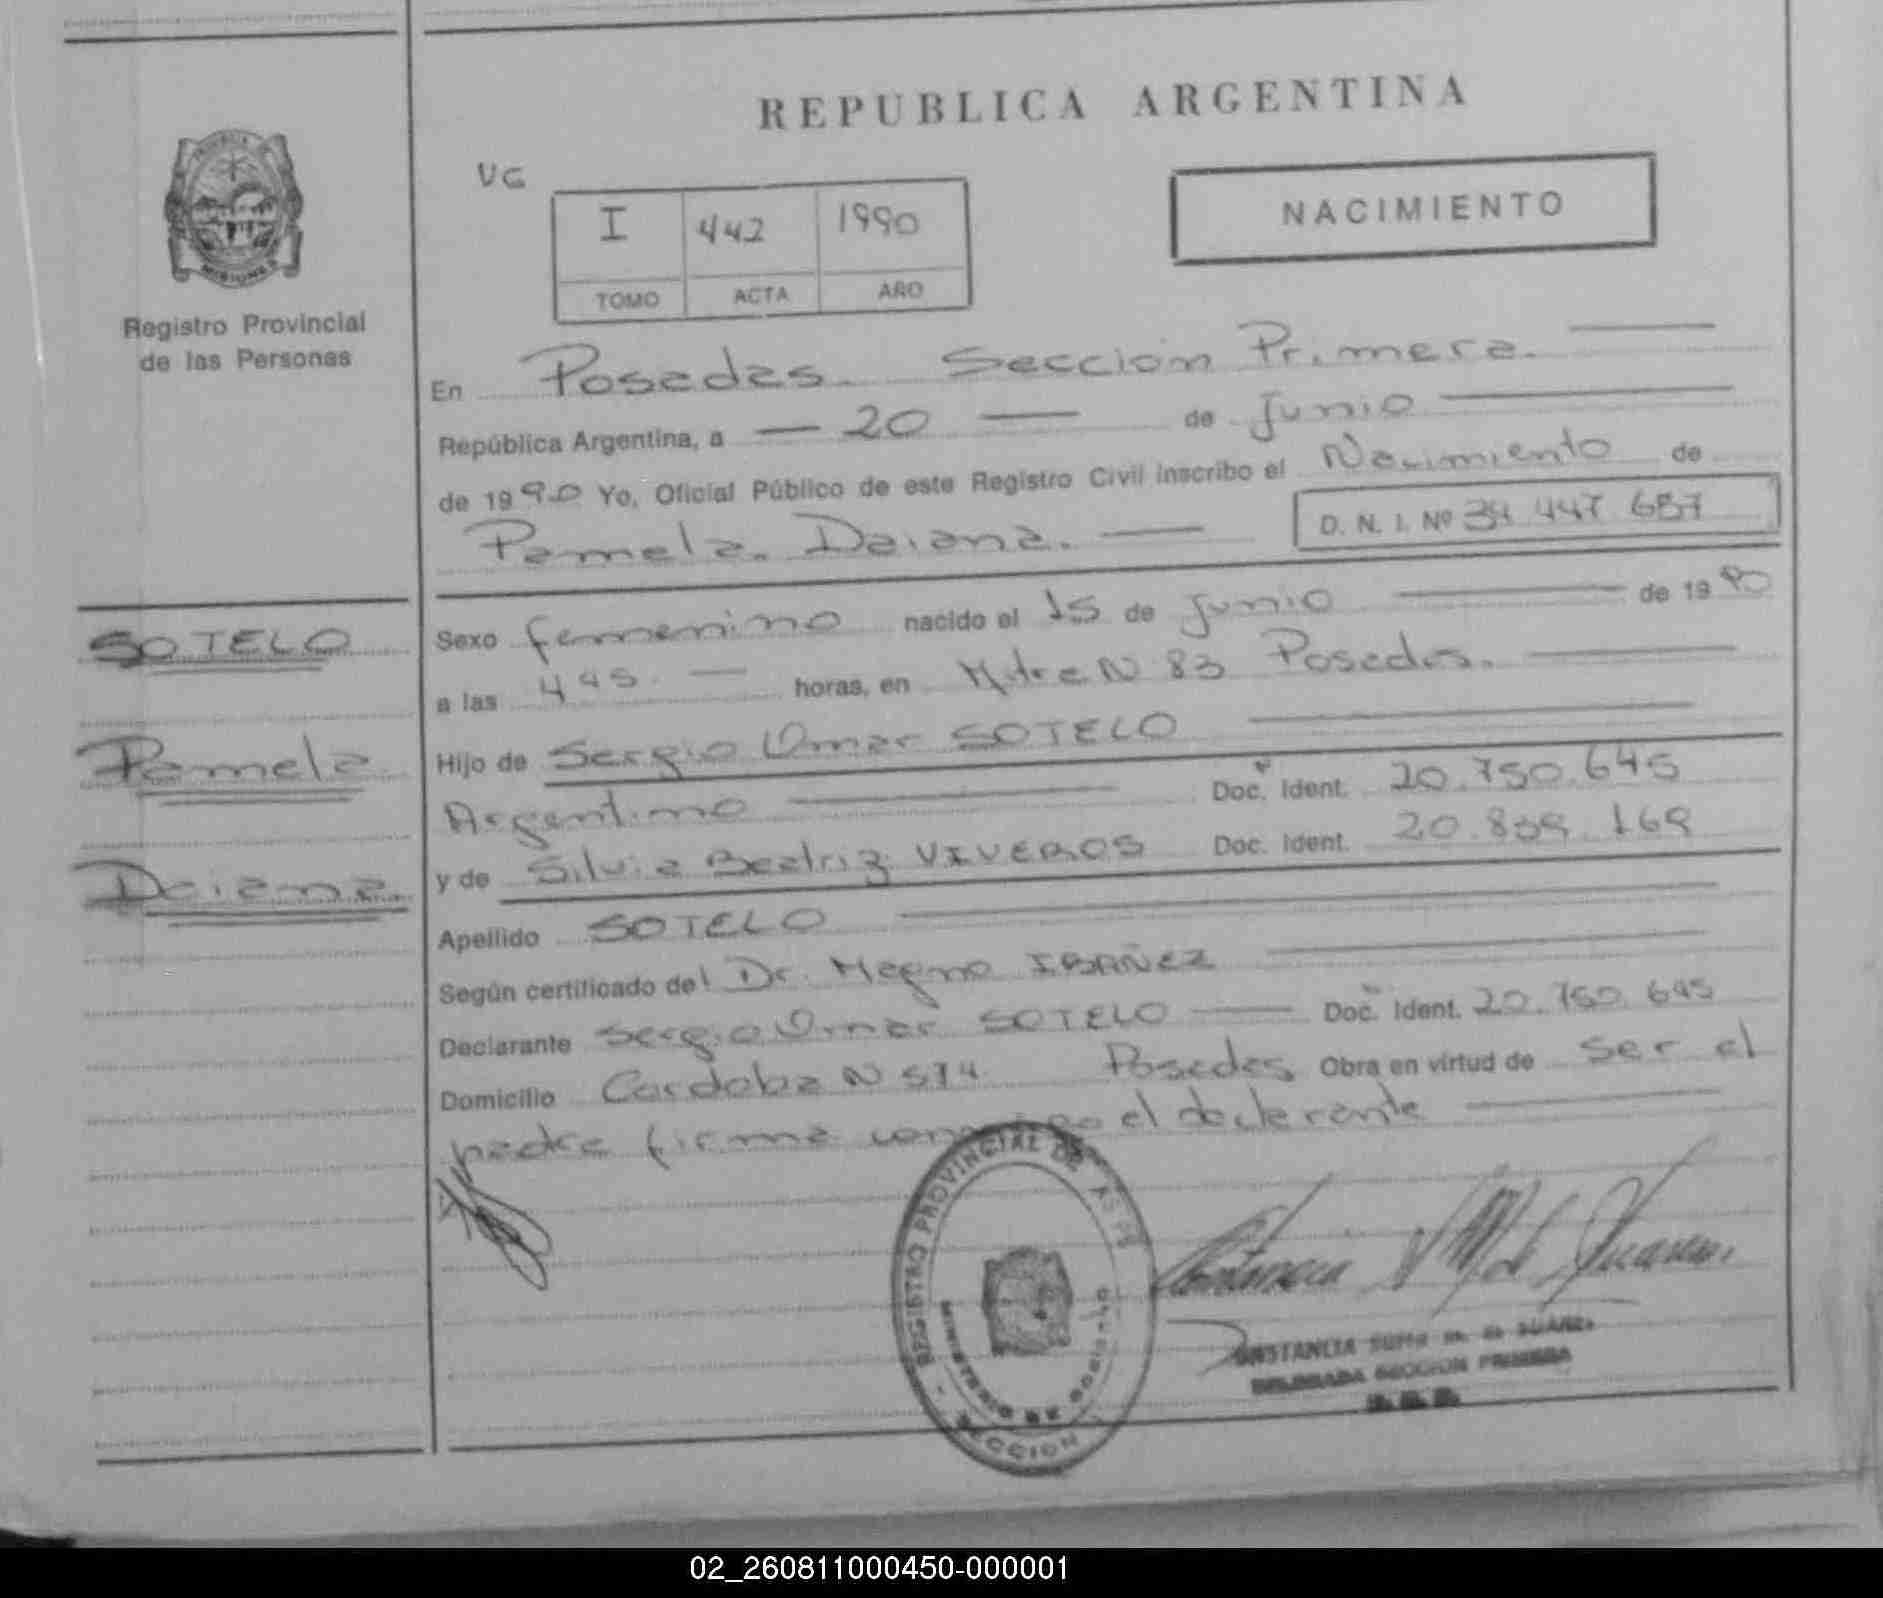 REPUBLICA ARGENTINA
VG
NACIMIENTO
I 442 1990
TOMO ACTA AÑO
MISIONES
Registro Provincial
de las Personas
En Posadas. Sección Primera.
República Argentina, a — 20 — de Junio
de 1990 Yo, Oficial Público de este Registro Civil inscribo el Nacimiento de
Pamela. Daiana. D. N. I. Nº 34 447 687
SOTELO
Pamela
Daiana.
Sexo femenino nacido el 15 de Junio de 1990
a las 4 45. — horas, en Mitre N 83 Posadas.
Hijo de Sergio Omar SOTELO
Argentino Doc. Ident. 20.750.645
y de Silvia Beatriz VIVEROS Doc. Ident. 20.839.169
Apellido SOTELO
Según certificado del Dr. Magno IBAÑEZ
Declarante Sergio Omar SOTELO Doc. Ident. 20.750.645
Domicilio Cordoba N 574 Posadas Obra en virtud de ser el
padre firma el declarante
REGISTRO PROVINCIAL DE
MINISTERIO DE
SECCION
DELEGADA SECCION PRIMERA
02_260811000450-000001